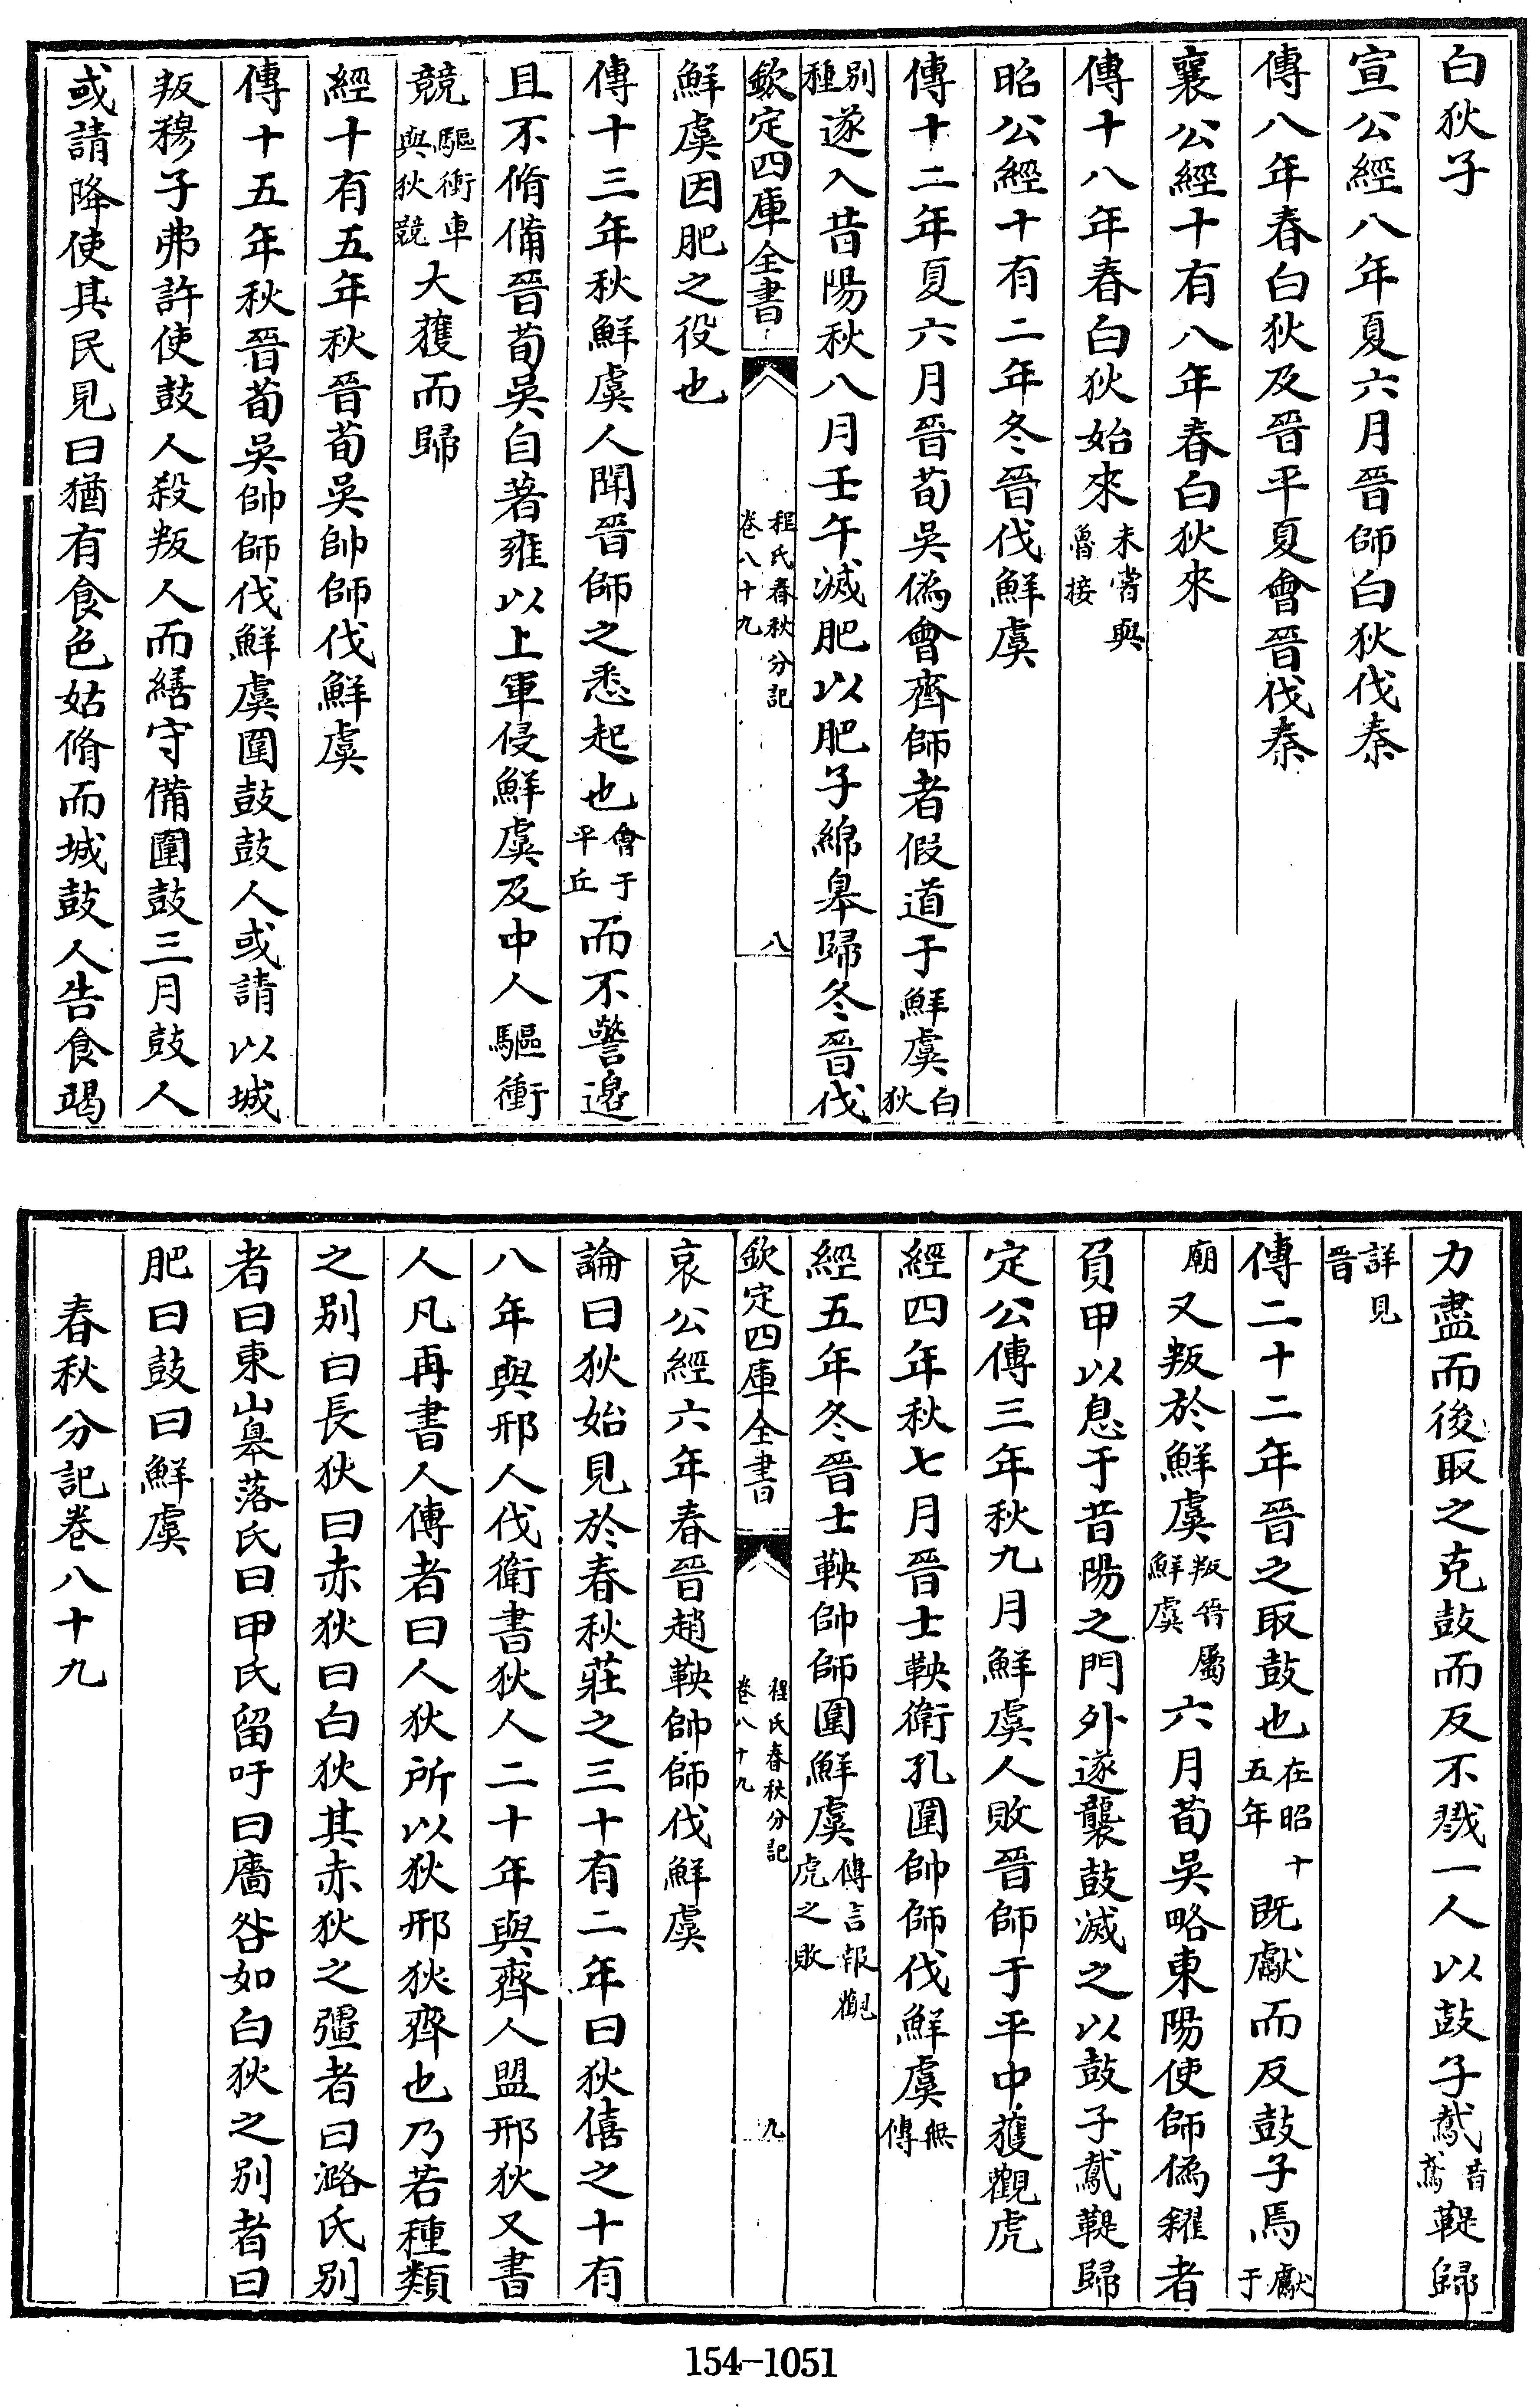 白狄子
宣公經八年夏六月晉師白狄伐秦
傳八年春白狄及晉平夏會晉伐秦
襄公經十有八年春白狄來
傳十八年春白狄始來未嘗與魯接
昭公經十有二年冬晉伐鮮虞
傳十二年夏六月晉荀吳偽會齊師者假道于鮮虞白狄
別種遂入昔陽秋八月壬午滅肥以肥子綿皋歸冬晉伐
欽定四庫全書
程氏春秋分記
卷八十九
八
鮮虞因肥之役也
傳十三年秋鮮虞人聞晉師之悉起也會于平丘而不警邊
且不脩備晉荀吳自著雍以上軍侵鮮虞及中人驅衝
競驅衝車與狄競大獲而歸
經十有五年秋晉荀吳帥師伐鮮虞
傳十五年秋晉荀吳帥師伐鮮虞圍鼓鼓人或請以城
叛穆子弗許使鼓人殺叛人而繕守備圍鼓三月鼓人
或請降使其民見曰猶有食色姑脩而城鼓人告食竭
力盡而後取之克鼓而反不戮一人以鼓子䳒音鳶鞮歸
詳見晉
傳二十二年晉之取鼓也在昭十五年既獻而反鼓子焉獻于
廟又叛於鮮虞叛晉屬鮮虞六月荀吳略東陽使師偽糴者
負甲以息于昔陽之門外遂襲鼓滅之以鼓子䳒鞮歸
定公傳三年秋九月鮮虞人敗晉師于平中獲觀虎
經四年秋七月晉士鞅衛孔圍帥師伐鮮虞無傳
經五年冬晉士鞅帥師圍鮮虞傳言報觀虎之敗
欽定四庫全書
程氏春秋分記
卷八十九
九
哀公經六年春晉趙鞅帥師伐鮮虞
論曰狄始見於春秋莊之三十有二年曰狄僖之十有
八年與邢人伐衛書狄人二十年與齊人盟邢狄又書
人凡再書人傳者曰人狄所以狄邢狄齊也乃若種類
之別曰長狄曰赤狄曰白狄其赤狄之彊者曰潞氏別
者曰東山皋落氏曰甲氏留吁曰廧咎如白狄之別者曰
肥曰鼓曰鮮虞
春秋分記卷八十九
154-1051